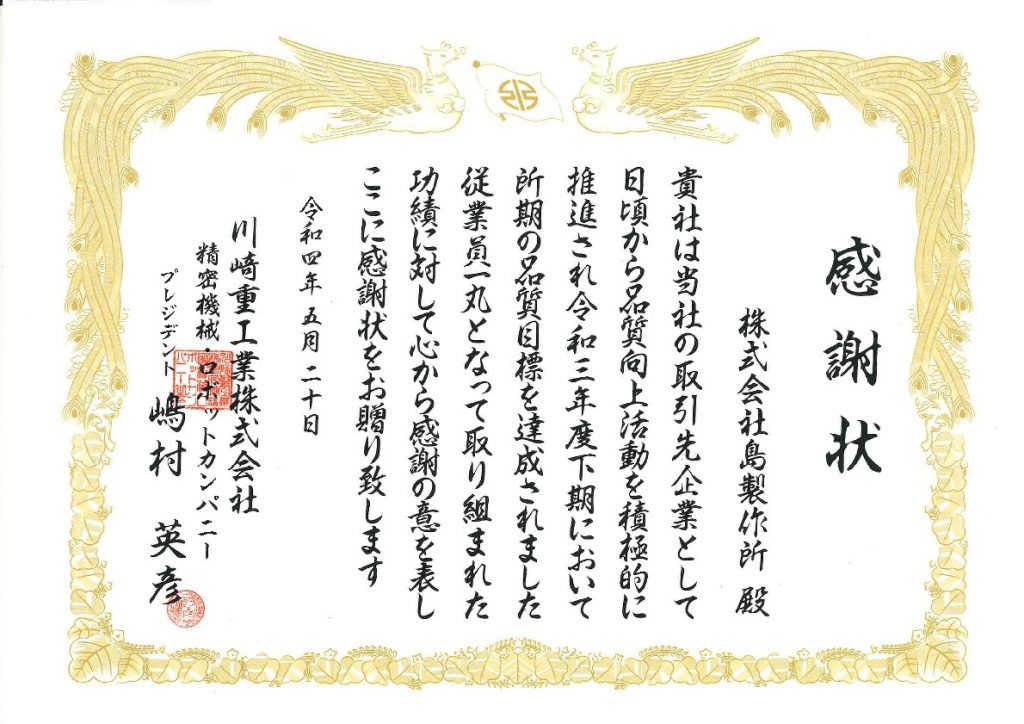 感謝状
株式会社島製作所 殿
貴社は当社の取引先企業として
日頃から品質向上活動を積極的に
推進され令和三年度下期において
所期の品質目標を達成されました
従業員一丸となって取り組まれた
功績に対して心から感謝の意を表し
ここに感謝状をお贈り致します
令和四年 五月 二十日
川崎重工業株式会社
精密機械・ロボットカンパニー
プレジデント 嶋村 英彦